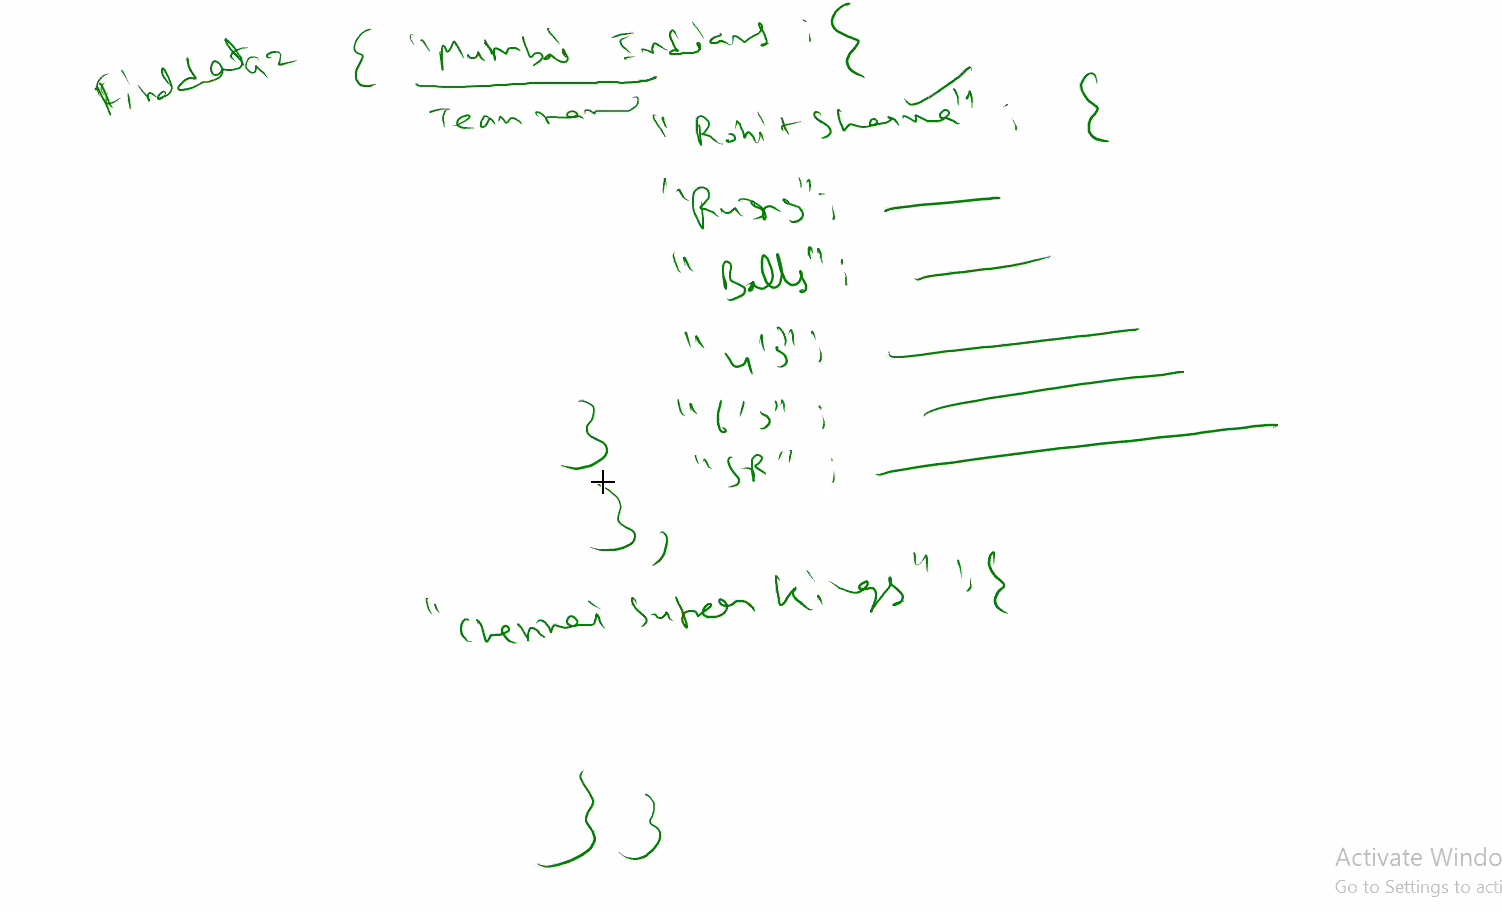 Finaldata = { "Mumbai Indians : {
Team name
"Rohit Sharma" : {
"Runs" :
"Balls" :
"4's" :
"6's" :
"SR" :
}
},
"Chennai Super Kings" : {
} }
Activate Windo
Go to Settings to acti